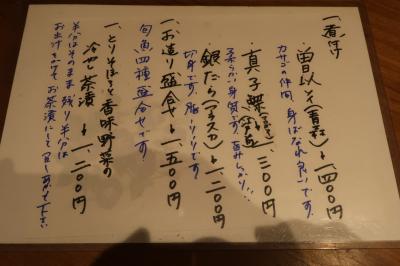 一、煮付
曽以(青森)→一、四〇〇円
カサゴの仲間、身ばなれ良いです。
真子鰈 一、三〇〇円
柔らかい身質です。旨みしっかり!!
銀だら(アラスカ)→一、二〇〇円
切身です。脂ノリノリです
一、お造り盛合せ→一、五〇〇円
旬魚四種盛合せです!
一、とりそぼろと香味野菜の
冷やし茶漬→一、二〇〇円
半分はそのまま 残り半分は
お出汁をかけて お茶漬にして召しあがって下さい